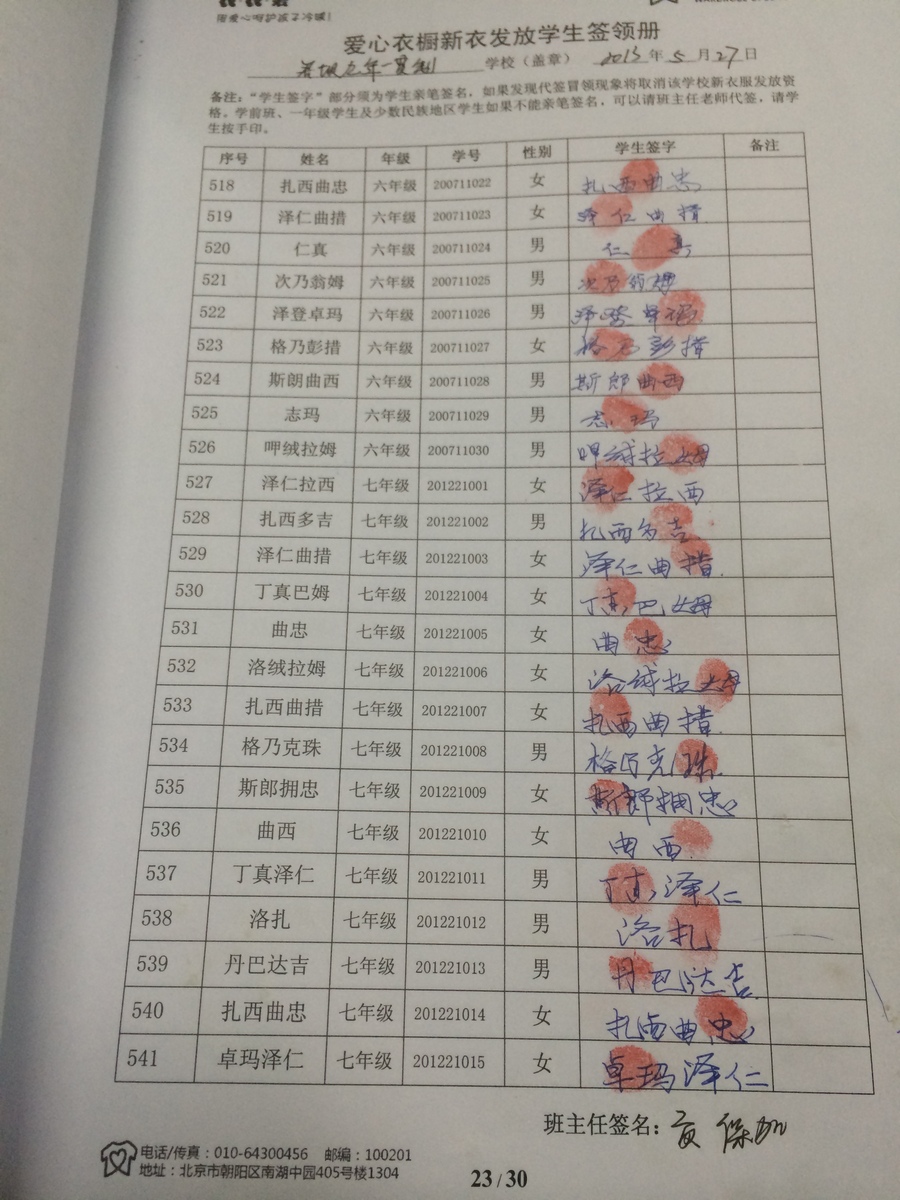 用爱心呵护孩子冷暖!
爱心衣橱新衣发放学生签领册
九年一贯制 学校（盖章） 2013年5月27日
备注：“学生签字”部分须为学生亲笔签名，如果发现代签冒领现象将取消该学校新衣服发放资
格。学前班、一年级学生及少数民族地区学生如果不能亲笔签名，可以请班主任老师代签，请学
生按手印。
序号 姓名 年级 学号 性别 学生签字 备注
518 扎西曲忠 六年级 200711022 女 扎西曲忠
519 泽仁曲措 六年级 200711023 女 泽仁曲措
520 仁真 六年级 200711024 男 仁真
521 次乃翁姆 六年级 200711025 男 次乃翁姆
522 泽登卓玛 六年级 200711026 男 泽登卓玛
523 格乃彭措 六年级 200711027 女 格乃彭措
524 斯朗曲西 六年级 200711028 男 斯郎曲西
525 志玛 六年级 200711029 男 志玛
526 呷绒拉姆 六年级 200711030 男 呷绒拉姆
527 泽仁拉西 七年级 201221001 女 泽仁拉西
528 扎西多吉 七年级 201221002 男 扎西多吉
529 泽仁曲措 七年级 201221003 女 泽仁曲措
530 丁真巴姆 七年级 201221004 女 丁真巴姆
531 曲忠 七年级 201221005 女 曲忠
532 洛绒拉姆 七年级 201221006 女 洛绒拉姆
533 扎西曲措 七年级 201221007 女 扎西曲措
534 格乃克珠 七年级 201221008 男 格乃克珠
535 斯郎拥忠 七年级 201221009 女 斯郎拥忠
536 曲西 七年级 201221010 女 曲西
537 丁真泽仁 七年级 201221011 男 丁真泽仁
538 洛扎 七年级 201221012 男 洛扎
539 丹巴达吉 七年级 201221013 男 丹巴达吉
540 扎西曲忠 七年级 201221014 女 扎西曲忠
541 卓玛泽仁 七年级 201221015 女 卓玛泽仁
班主任签名：
电话/传真：010-64300456 邮编：100201
地址：北京市朝阳区南湖中园405号楼1304
23 / 30